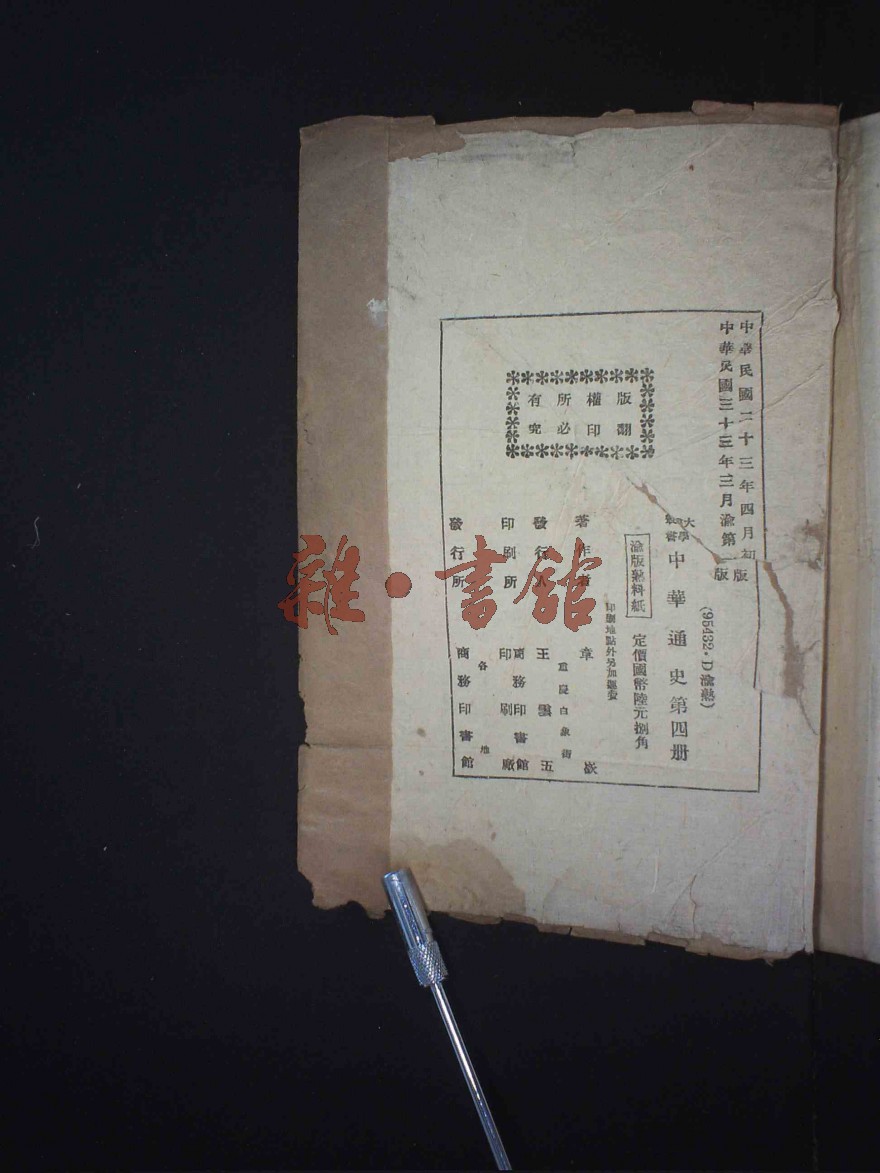 中華民國二十三年四月初版
中華民國三十三年三月渝第一版
(95432·D渝熟)
大學叢書
中華通史第四册
渝版熟料紙
定價國幣陸元捌角
印刷地點外另加運費
版權所有
翻印必究
著作者 章嶔
重慶白象街
發行人 王雲五
印刷所 商務印書館印刷廠
各地
發行所 商務印書館
雜·書館